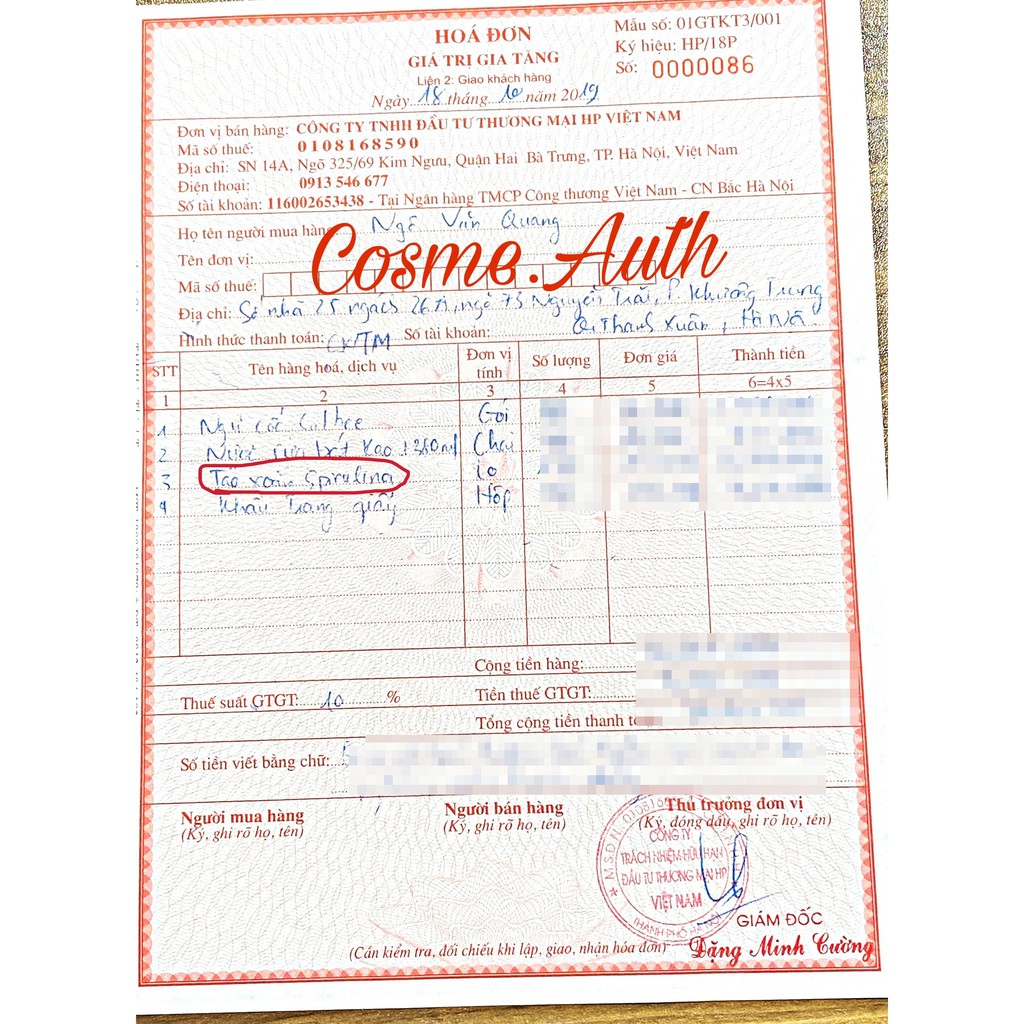 HOÁ ĐƠN
GIÁ TRỊ GIA TĂNG
Liên 2: Giao khách hàng
Ngày 18 tháng 10 năm 2019
Mẫu số: 01GTKT3/001
Ký hiệu: HP/18P
Số: 0000086
Đơn vị bán hàng: CÔNG TY TNHH ĐẦU TƯ THƯƠNG MẠI HP VIỆT NAM
Mã số thuế: 0108168590
Địa chỉ: SN 14A, Ngõ 325/69 Kim Ngưu, Quận Hai Bà Trưng, TP. Hà Nội, Việt Nam
Điện thoại: 0913 546 677
Số tài khoản: 116002653438 - Tại Ngân hàng TMCP Công thương Việt Nam - CN Bắc Hà Nội
Họ tên người mua hàng Ngô Văn Quang
Cosme.Auth
Tên đơn vị:
Mã số thuế:
Địa chỉ: Số nhà 25 ngách 26A, ngõ 73 Nguyễn Trãi, P. Khương Trung
Q. Thanh Xuân, Hà Nội.
Hình thức thanh toán: CK/TM Số tài khoản:
STT Tên hàng hoá, dịch vụ Đơn vị tính Số lượng Đơn giá Thành tiền
1 2 3 4 5 6=4x5
1 Ngũ cốc Gói
2 Nước rửa bát Kao Chai
3 Tảo xoắn Spirulina Lọ
4 Khẩu trang giấy Hộp
Cộng tiền hàng:
Thuế suất GTGT: 10 % Tiền thuế GTGT:
Tổng cộng tiền thanh
Số tiền viết bằng chữ:
Người mua hàng Người bán hàng Thủ trưởng đơn vị
(Ký, ghi rõ họ, tên) (Ký, ghi rõ họ, tên) (Ký, đóng dấu, ghi rõ họ, tên)
CÔNG TY
TRÁCH NHIỆM HỮU HẠN
ĐẦU TƯ THƯƠNG MẠI HP
VIỆT NAM
GIÁM ĐỐC
Đặng Minh Cường
(Cần kiểm tra, đối chiếu khi lập, giao, nhận hóa đơn)